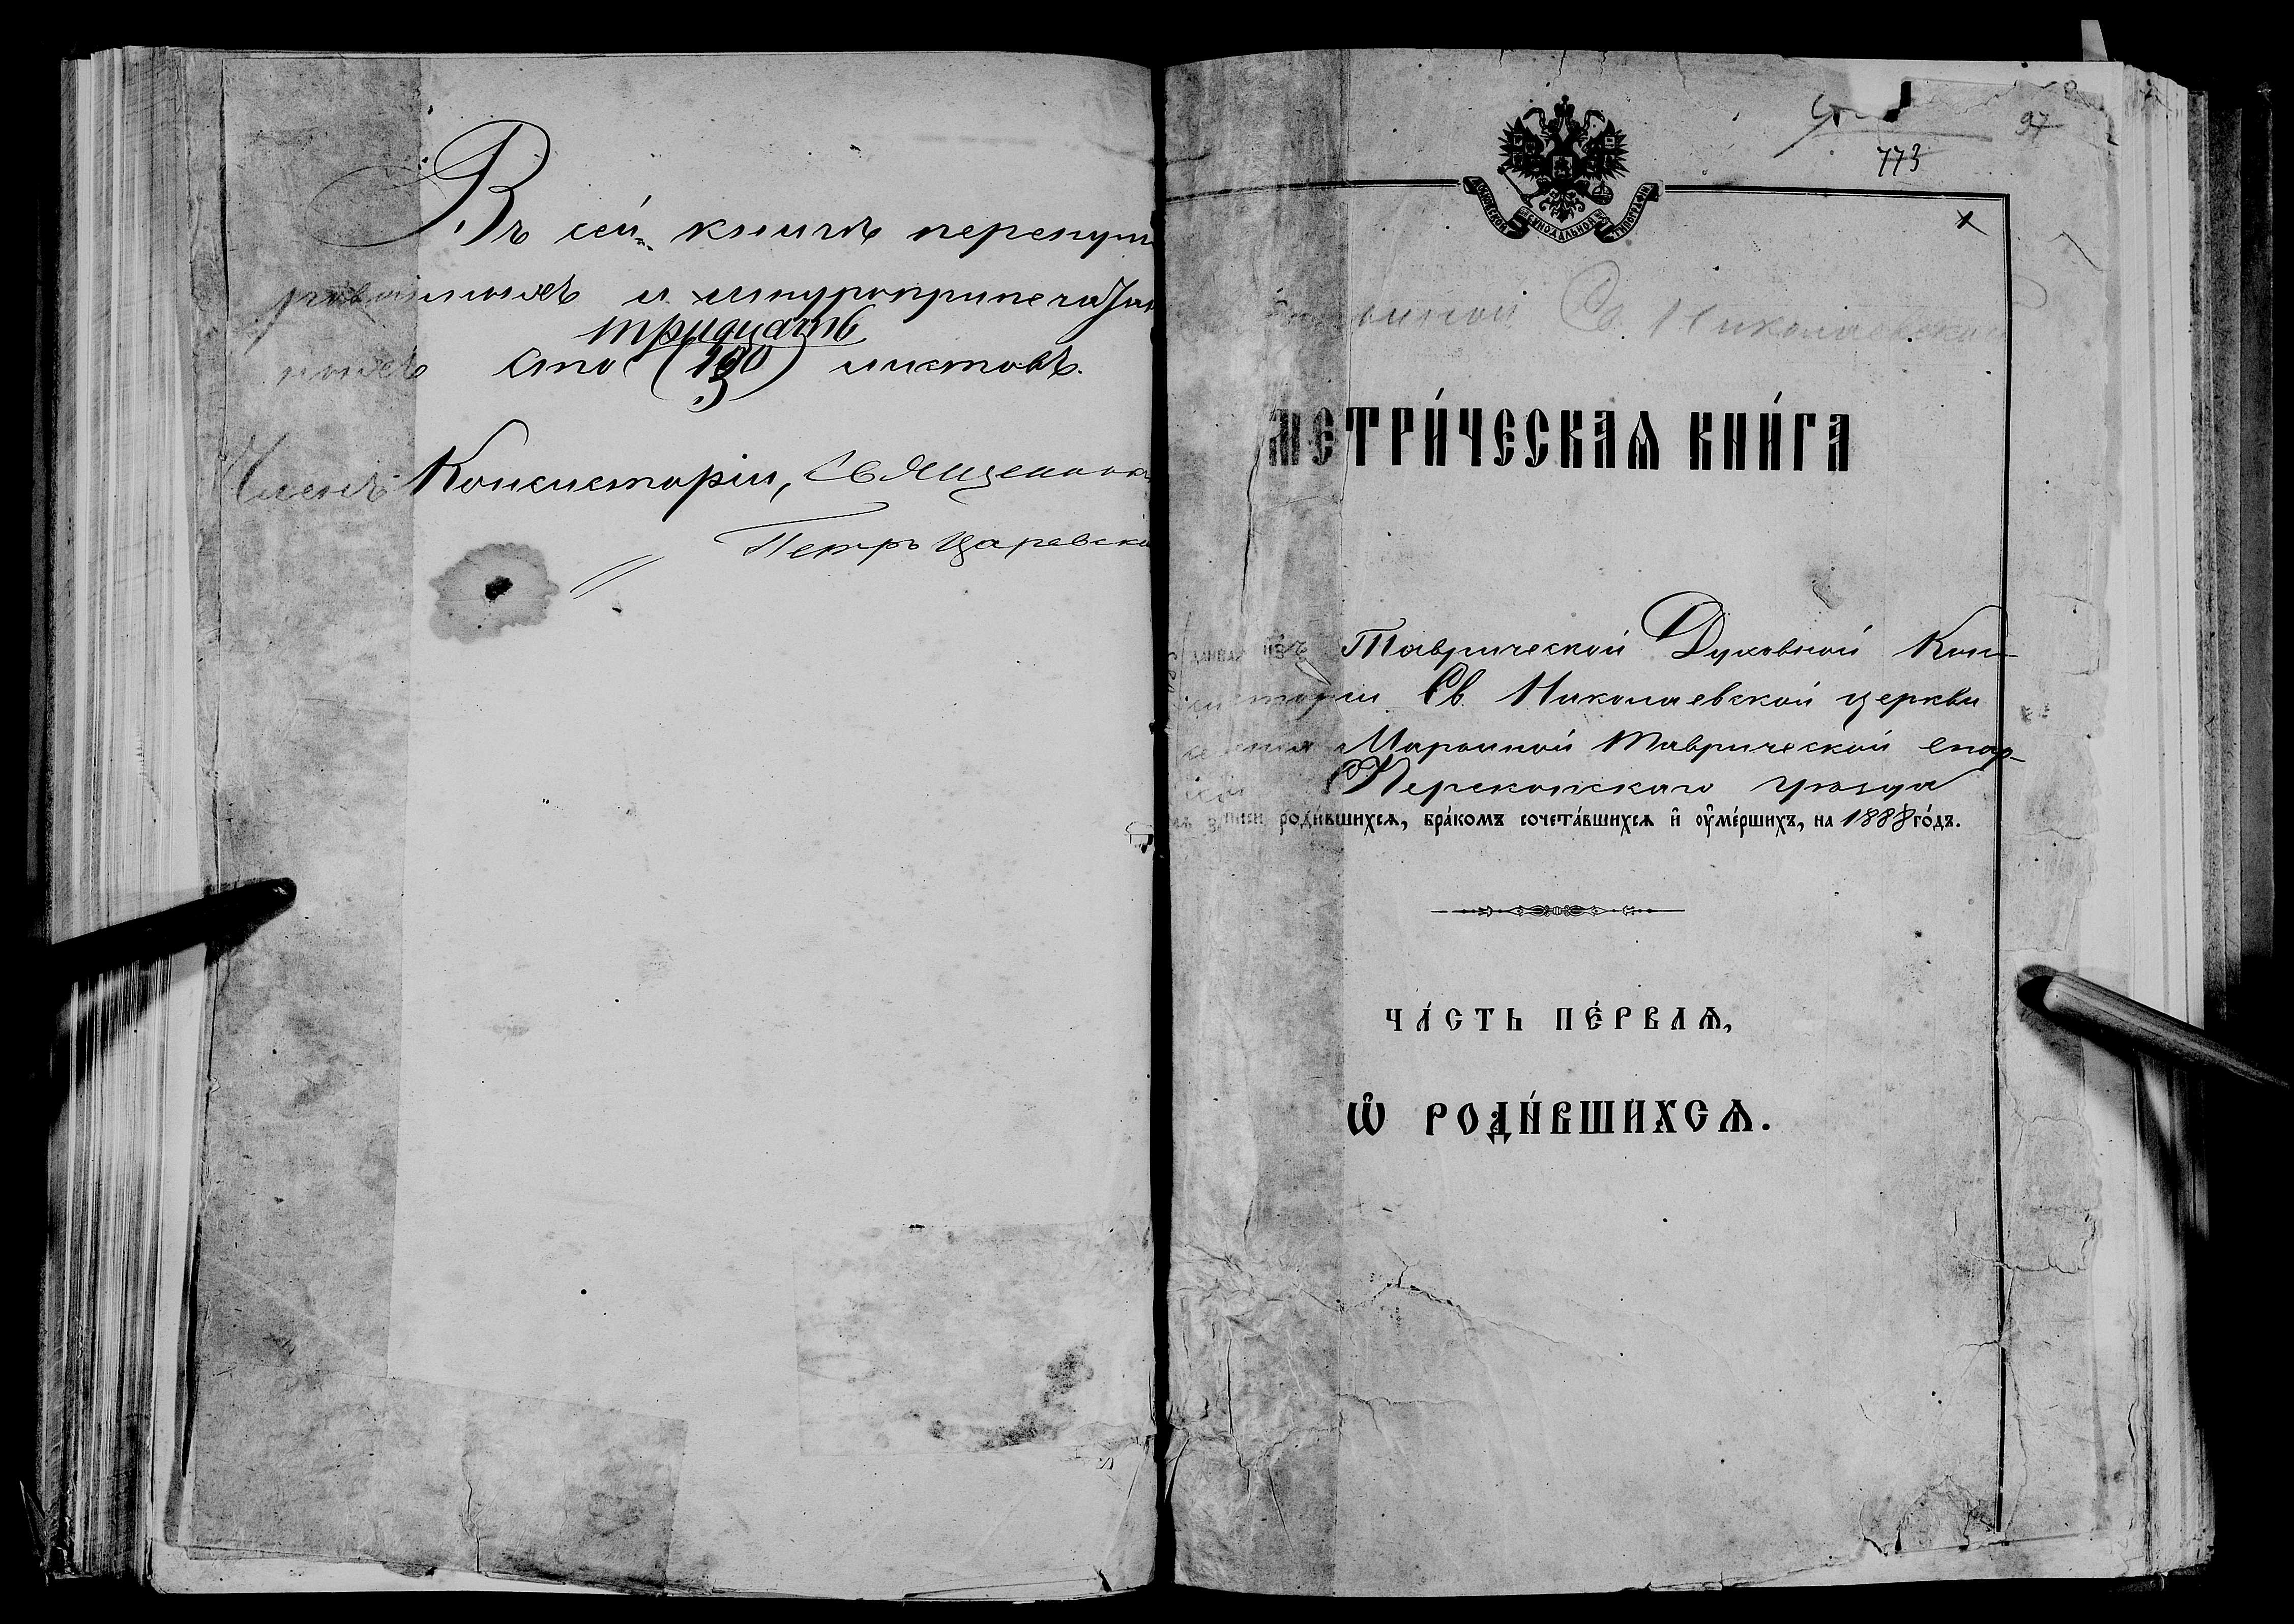 Въ сей книгѣ перенуме
рованныхъ и шнуроприпечатан
тридцать
ныхъ сто (130) листовъ.
Членъ Консисторіи, Священникъ
Петръ Царевскі
97
773
МОСКОВСКОЙ СѴНОДАЛЬНОЙ ТИПОГРАФІИ
Св. Николаевской
МЕТРИ́ЧЕСКАѦ КНИ́ГА
ДАННАѦ ИЗЪ Таврической Духовной Кон-
систоріи Св. Николаевской церкви
селенія Марьиной Таврической епар-
Перекопскаго уѣзда
роди́вшихсѧ, бра́комъ сочета́вшихсѧ и҆ ᲂу҆ме́ршихъ, на 1888 го́дъ.
ЧА́СТЬ ПЕ́РВАѦ,
Ѡ҆ РОДИ́ВШИХСѦ.